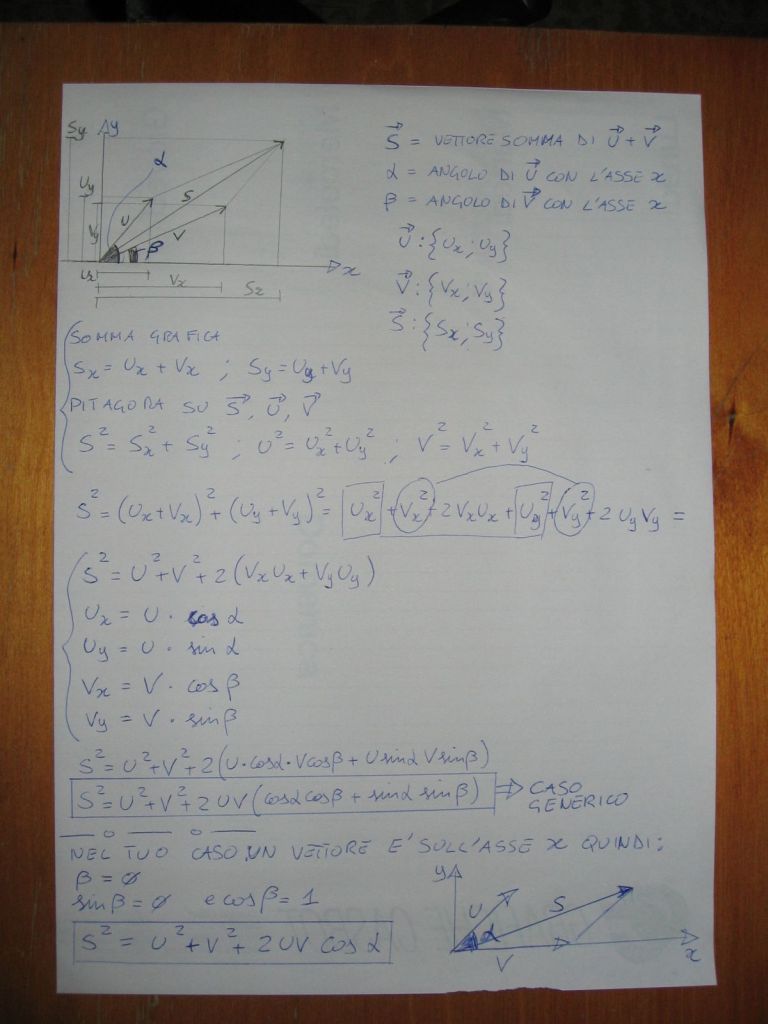 Sy y
α
Uy
Vy U S
V β
Ux
x
Vx
Sx
S⃗ = VETTORE SOMMA DI U⃗ + V⃗
α = ANGOLO DI U⃗ CON L'ASSE x
β = ANGOLO DI V⃗ CON L'ASSE x
U⃗ : {Ux ; Uy}
V⃗ : {Vx ; Vy}
S⃗ : {Sx ; Sy}
SOMMA GRAFICA
Sx = Ux + Vx ; Sy = Uy + Vy
PITAGORA SU S⃗, U⃗, V⃗
S² = Sx² + Sy² ; U² = Ux² + Uy² ; V² = Vx² + Vy²
S² = (Ux + Vx)² + (Uy + Vy)² = Ux² + Vx² + 2 Vx Ux + Uy² + Vy² + 2 Uy Vy =
S² = U² + V² + 2 (Vx Ux + Vy Uy)
Ux = U · cos α
Uy = U · sin α
Vx = V · cos β
Vy = V · sin β
S² = U² + V² + 2 (U · cosα · V cosβ + U sinα V sinβ)
S² = U² + V² + 2 UV (cosα cosβ + sinα sinβ) ⇒ CASO
GENERICO
NEL TUO CASO, UN VETTORE E' SULL'ASSE x QUINDI:
β = 0
sinβ = 0 e cosβ = 1
S² = U² + V² + 2 UV cos α
y
U S
α
V x